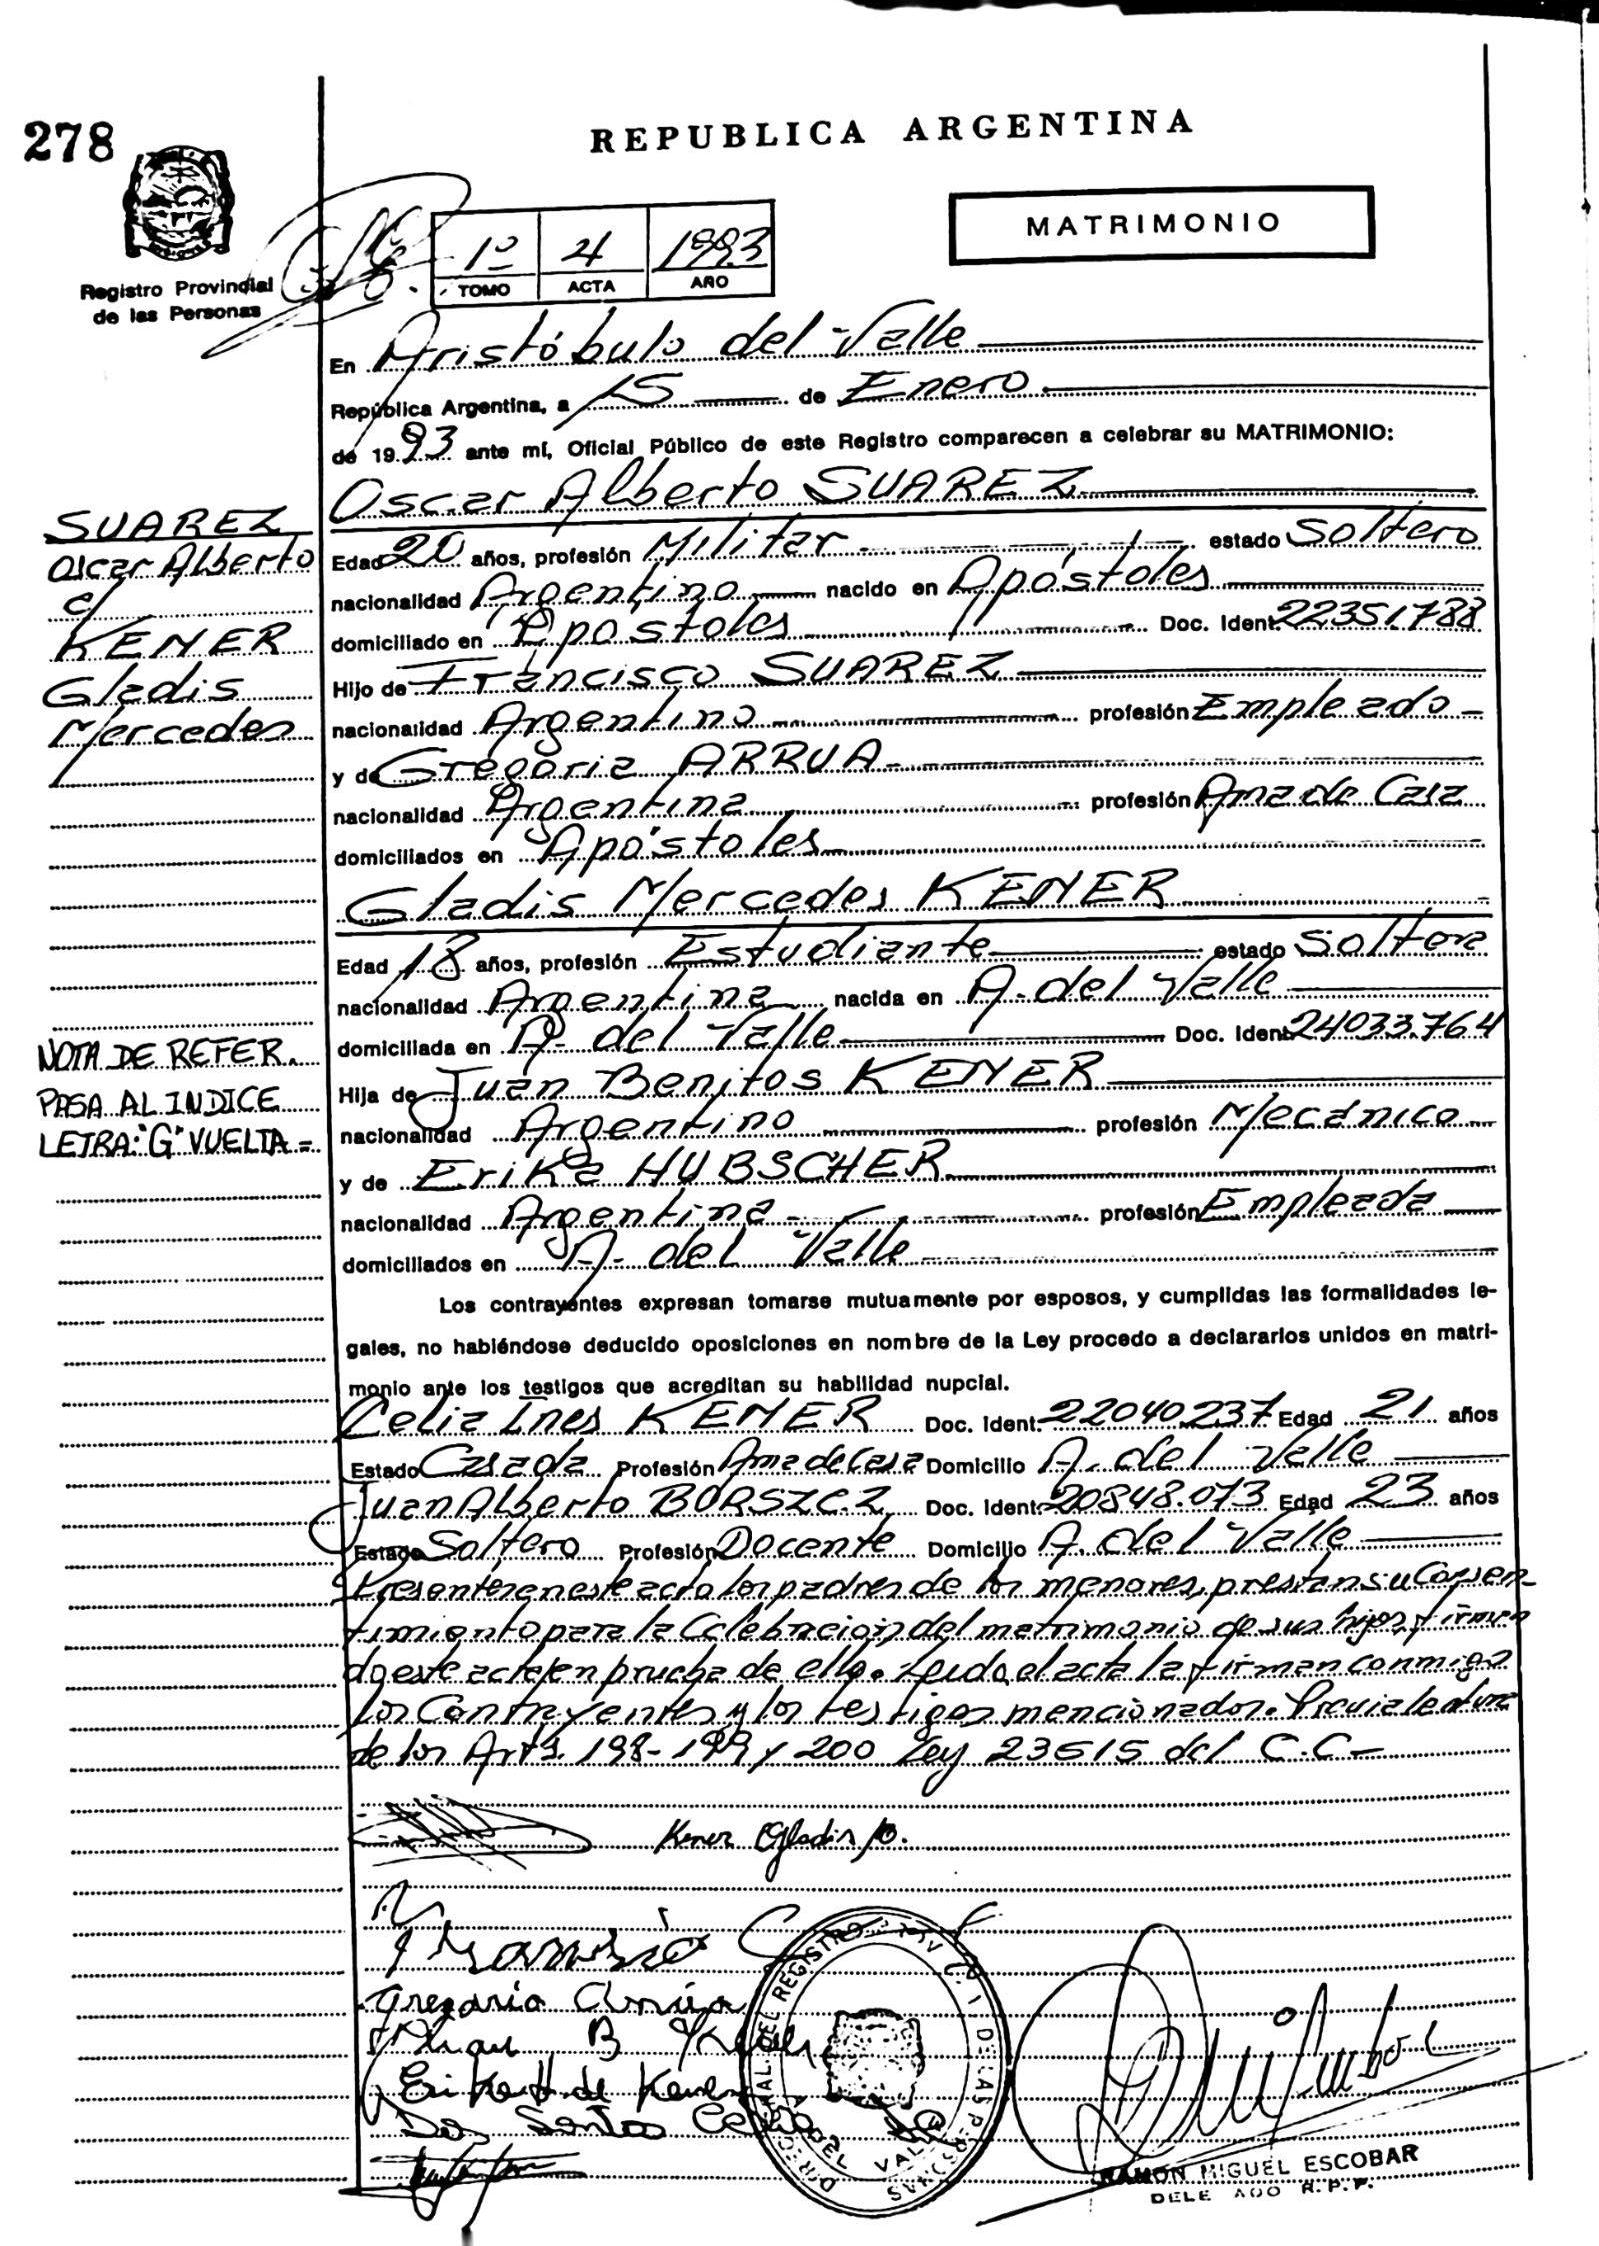 278
REPUBLICA ARGENTINA
MATRIMONIO
Registro Provincial
de las Personas
1º 4 1993
TOMO ACTA AÑO
En Aristóbulo del Valle
República Argentina, a 15 de Enero
de 1993 ante mí, Oficial Público de este Registro comparecen a celebrar su MATRIMONIO:
Oscar Alberto SUAREZ
SUAREZ
Oscar Alberto
c/
KENER
Gladis
Mercedes
Edad 20 años, profesión Militar estado Soltero
nacionalidad Argentino nacido en Apóstoles
domiciliado en Apóstoles Doc. Ident. 22351.788
Hijo de Francisco SUAREZ
nacionalidad Argentino profesión Empleado
y de Gregoria ARRUA
nacionalidad Argentina profesión Ama de Casa
domiciliados en Apóstoles
Gladis Mercedes KENER
Edad 18 años, profesión Estudiante estado Soltera
nacionalidad Argentina nacida en A. del Valle
domiciliada en A. del Valle Doc. Ident. 24033.764
NOTA DE REFER.
PASA AL INDICE
LETRA: "G" VUELTA =
Hija de Juan Benitos KENER
nacionalidad Argentino profesión Mecánico
y de Erika HUBSCHER
nacionalidad Argentina profesión Empleada
domiciliados en A. del Valle
Los contrayentes expresan tomarse mutuamente por esposos, y cumplidas las formalidades le-
gales, no habiéndose deducido oposiciones en nombre de la Ley procedo a declararlos unidos en matri-
monio ante los testigos que acreditan su habilidad nupcial.
Celia Ines KENER Doc. Ident. 22040237 Edad 21 años
Estado Casada Profesión Ama de Casa Domicilio A. del Valle
Juan Alberto BORSZCZ Doc. Ident. 20848.073 Edad 23 años
Estado Soltero Profesión Docente Domicilio A. del Valle
Presente en este acto los padres de los menores, prestan su Consen-
timiento para la Celebración del matrimonio de sus hijos, firman
do este acta en prueba de ello. Leida el acta la firman conmigo
los Contrayentes y los testigos mencionados. Previa lectura
de los Arts. 198-199 y 200 Ley 23515 del C.C.
Kener Gladis M.
Gregoria Arrúa
Juan B Kener
Erika H de Kener
Dos Santos Celia
RAMON MIGUEL ESCOBAR
DELEGADO R.P.P.